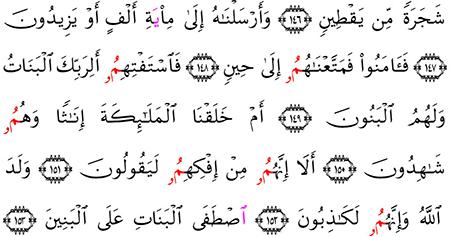 شَجَرَةٗ مِّن يَقۡطِينٖ ١٤٦ وَأَرۡسَلۡنَٰهُ إِلَىٰ مِاْيَةِ أَلۡفٍ أَوۡ يَزِيدُونَ
١٤٧ فَـَٔامَنُواْ فَمَتَّعۡنَٰهُمُۥ إِلَىٰ حِينٖ ١٤٨ فَٱسۡتَفۡتِهِمُۥ أَلِرَبِّكَ ٱلۡبَنَاتُ
وَلَهُمُ ٱلۡبَنُونَ ١٤٩ أَمۡ خَلَقۡنَا ٱلۡمَلَٰٓئِكَةَ إِنَٰثٗا وَهُمُۥ
شَٰهِدُونَ ١٥٠ أَلَا إِنَّهُمُۥ مِنۡ إِفۡكِهِمُۥ لَيَقُولُونَ ١٥١ وَلَدَ
ٱللَّهُ وَإِنَّهُمُۥ لَكَٰذِبُونَ ١٥٢ ٱصۡطَفَى ٱلۡبَنَاتِ عَلَى ٱلۡبَنِينَ ١٥٣